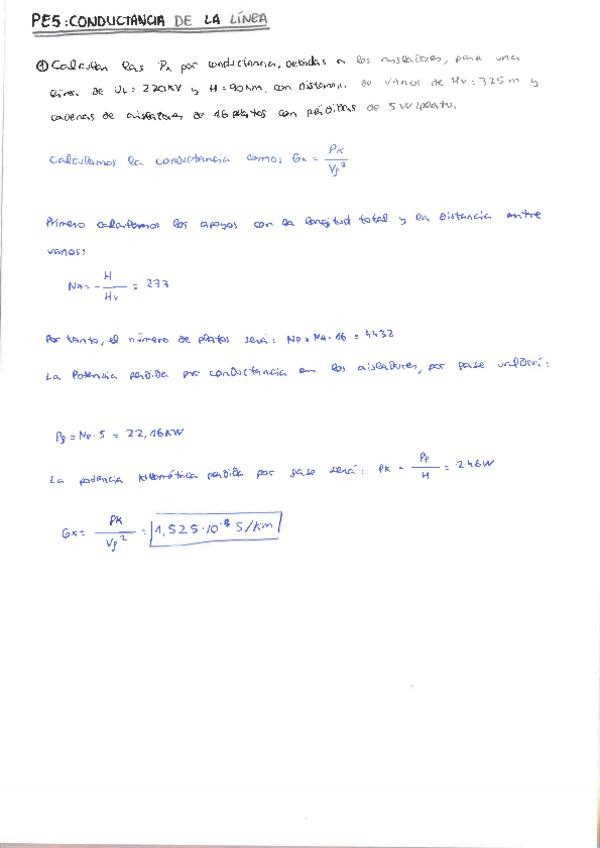 PE5: CONDUCTANCIA DE LA LÍNEA
① Calcular las Pk por conductancia, debidas a los aisladores, para una
línea de UL = 220KV y H = 90 km, con distancia de vanos de Hv = 325 m y
cadenas de aisladores de 16 platos con pérdidas de 5 W/plato.
Calculamos la conductancia como: Gk = Pk / Vf²
Primero calculamos los apoyos con la longitud total y la distancia entre
vanos:
NA = H / Hv = 277
Por tanto, el número de platos será: Np = NA · 16 = 4432
La Potencia perdida por conductancia en los aisladores, por fase valdrá:
Pp = Np · 5 = 22,16KW
La potencia kilométrica perdida por fase será: Pk = Pp / H = 246W
Gk = Pk / Vf² = 1,525·10⁻⁸ S/km